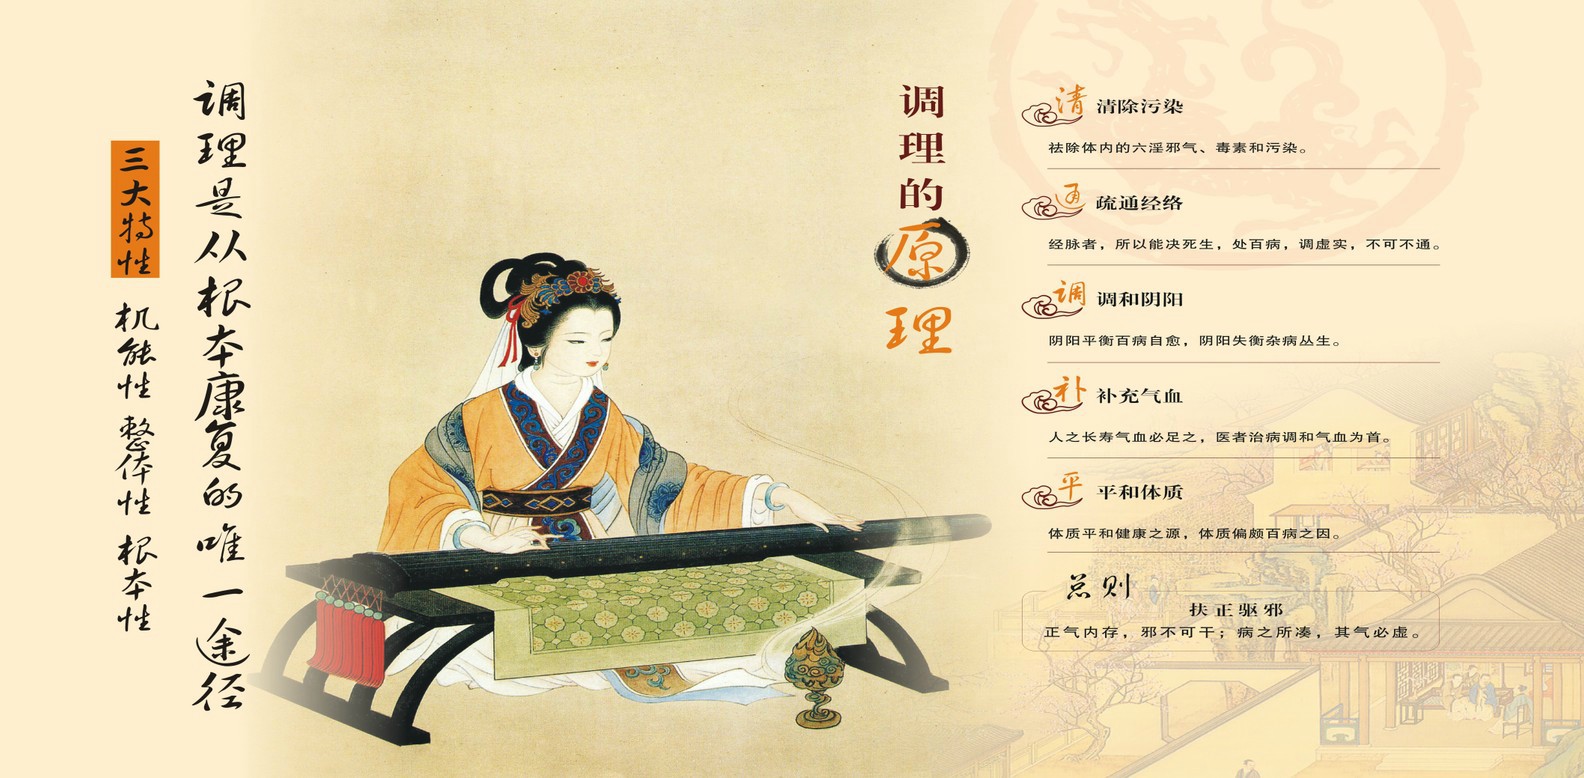 调理是从根本康复的唯一途径
三大特性
机能性 整体性 根本性
调理的原理
清 清除污染
祛除体内的六淫邪气、毒素和污染。
通 疏通经络
经脉者，所以能决死生，处百病，调虚实，不可不通。
调 调和阴阳
阴阳平衡百病自愈，阴阳失衡杂病丛生。
补 补充气血
人之长寿气血必足之，医者治病调和气血为首。
平 平和体质
体质平和健康之源，体质偏颇百病之因。
总则
扶正驱邪
正气内存，邪不可干；病之所凑，其气必虚。